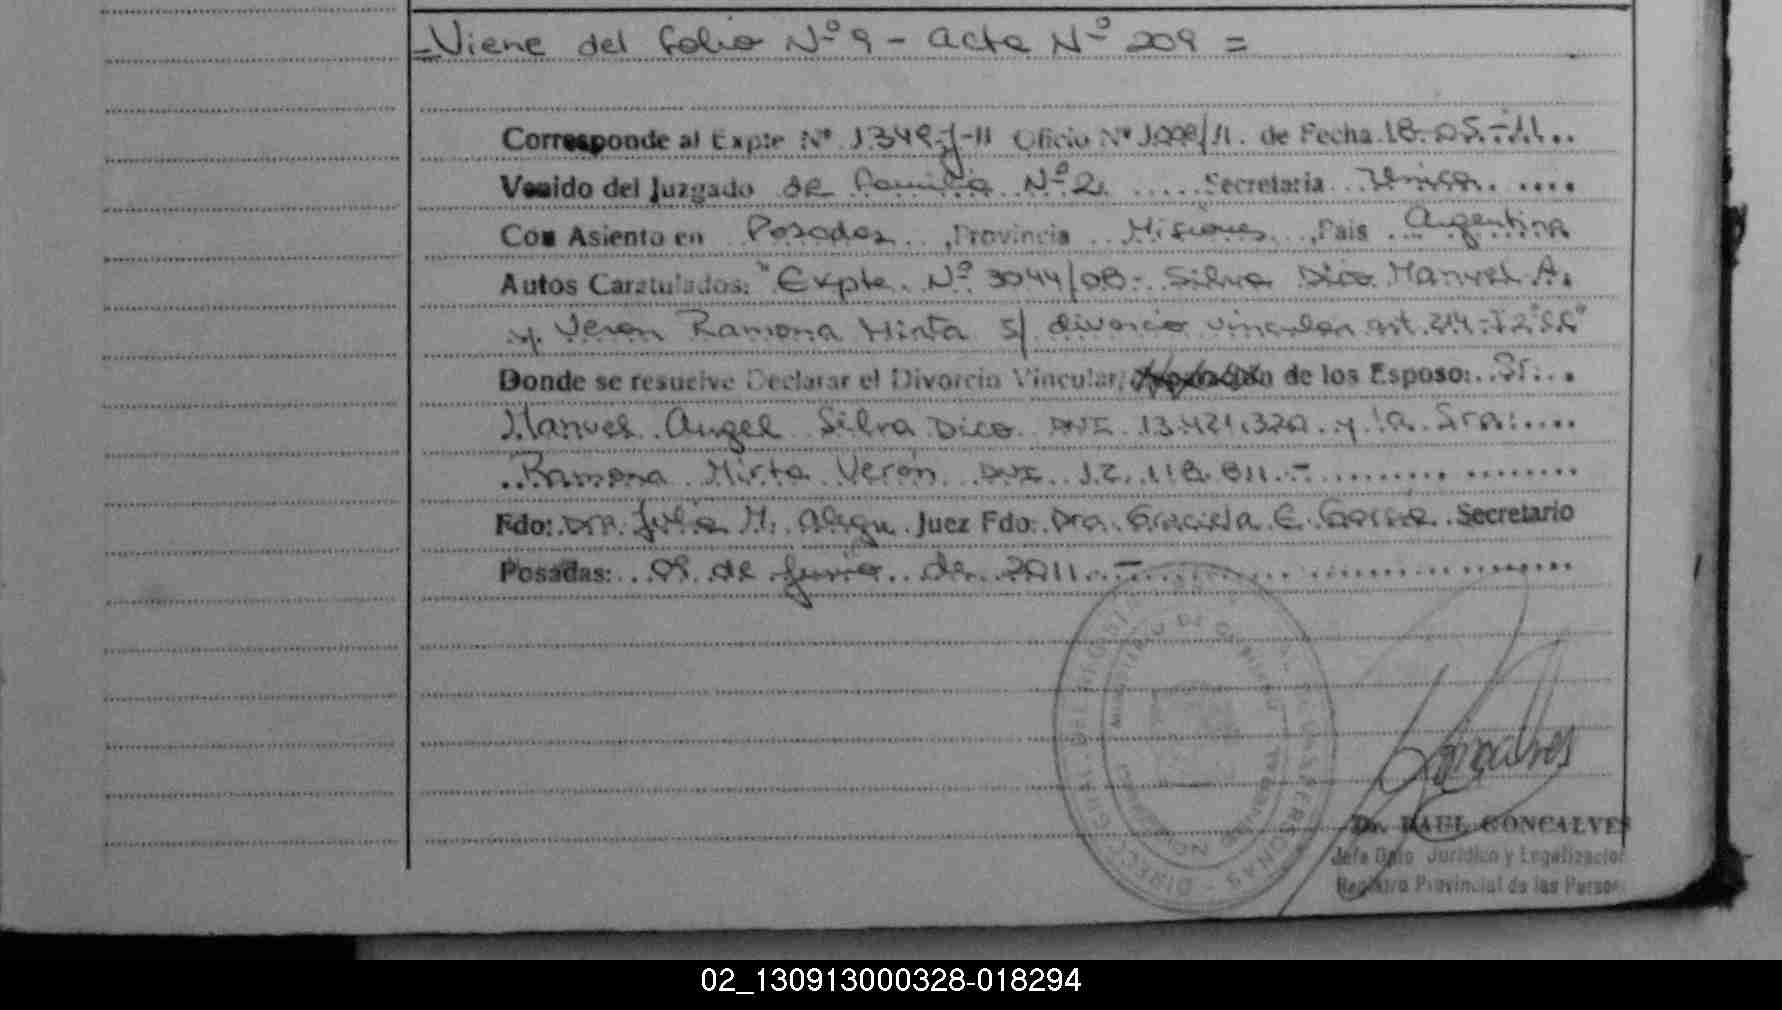 =Viene del folio Nº 9 - acta Nº 209 =
Corresponde al Expte Nº 1349-J-11 Oficio Nº /11. de Fecha 18-05-11..
Venido del Juzgado de Familia Nº 2 ..... Secretaria Unica. ....
Con Asiento en Posadas ..., Provincia .. Misiones ..., Pais .. Argentina
Autos Caratulados: "Expte. Nº 3044/08 - Silva Dico Manuel A.
y Veron Ramona Mirta s/ divorcio vincular art. 214-I2º CC"
Donde se resuelve Declarar el Divorcio Vincular, de los Esposo: .. Sr...
Manuel Angel Silva Dico DNI 13.421.320 y la Sra:....
..Ramona Mirta Verón DNI 12.118.811.- ......... ........
Fdo: Dra. Julia M. Alegu Juez Fdo: Dra. Graciela E. Garcia Secretario
Posadas: .. de Junio .. de 2011.- ............ ................
DIRECC. GRAL. DEL REGISTRO PROVINCIAL DE LAS PERSONAS
MINISTERIO DE GOBIERNO
Goncalves
Dr. RAUL GONCALVES
Jefe Dpto Jurídico y Legalizacion
Registro Provincial de las Person
02_130913000328-018294